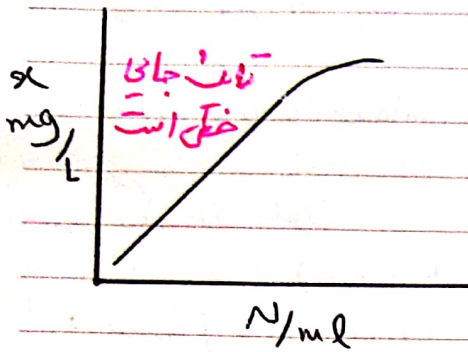 x
mg/L
تا یک جائی
خطی است
N/ml